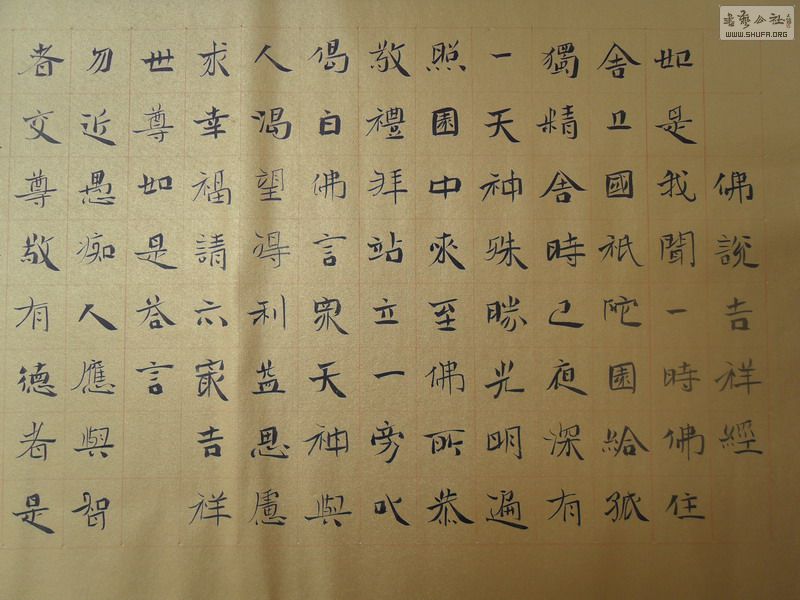 佛說吉祥經
如是我聞一時佛住
舍卫國祇陀園給孤
獨精舍時已夜深有
一天神殊勝光明遍
照園中來至佛所恭
敬禮拜站立一旁以
偈白佛言眾天神與
人渴望得利益思慮
求幸福請示最吉祥
世尊如是答言
勿近愚痴人應與智
者交尊敬有德者是
書藝公社
WWW.SHUFA.ORG